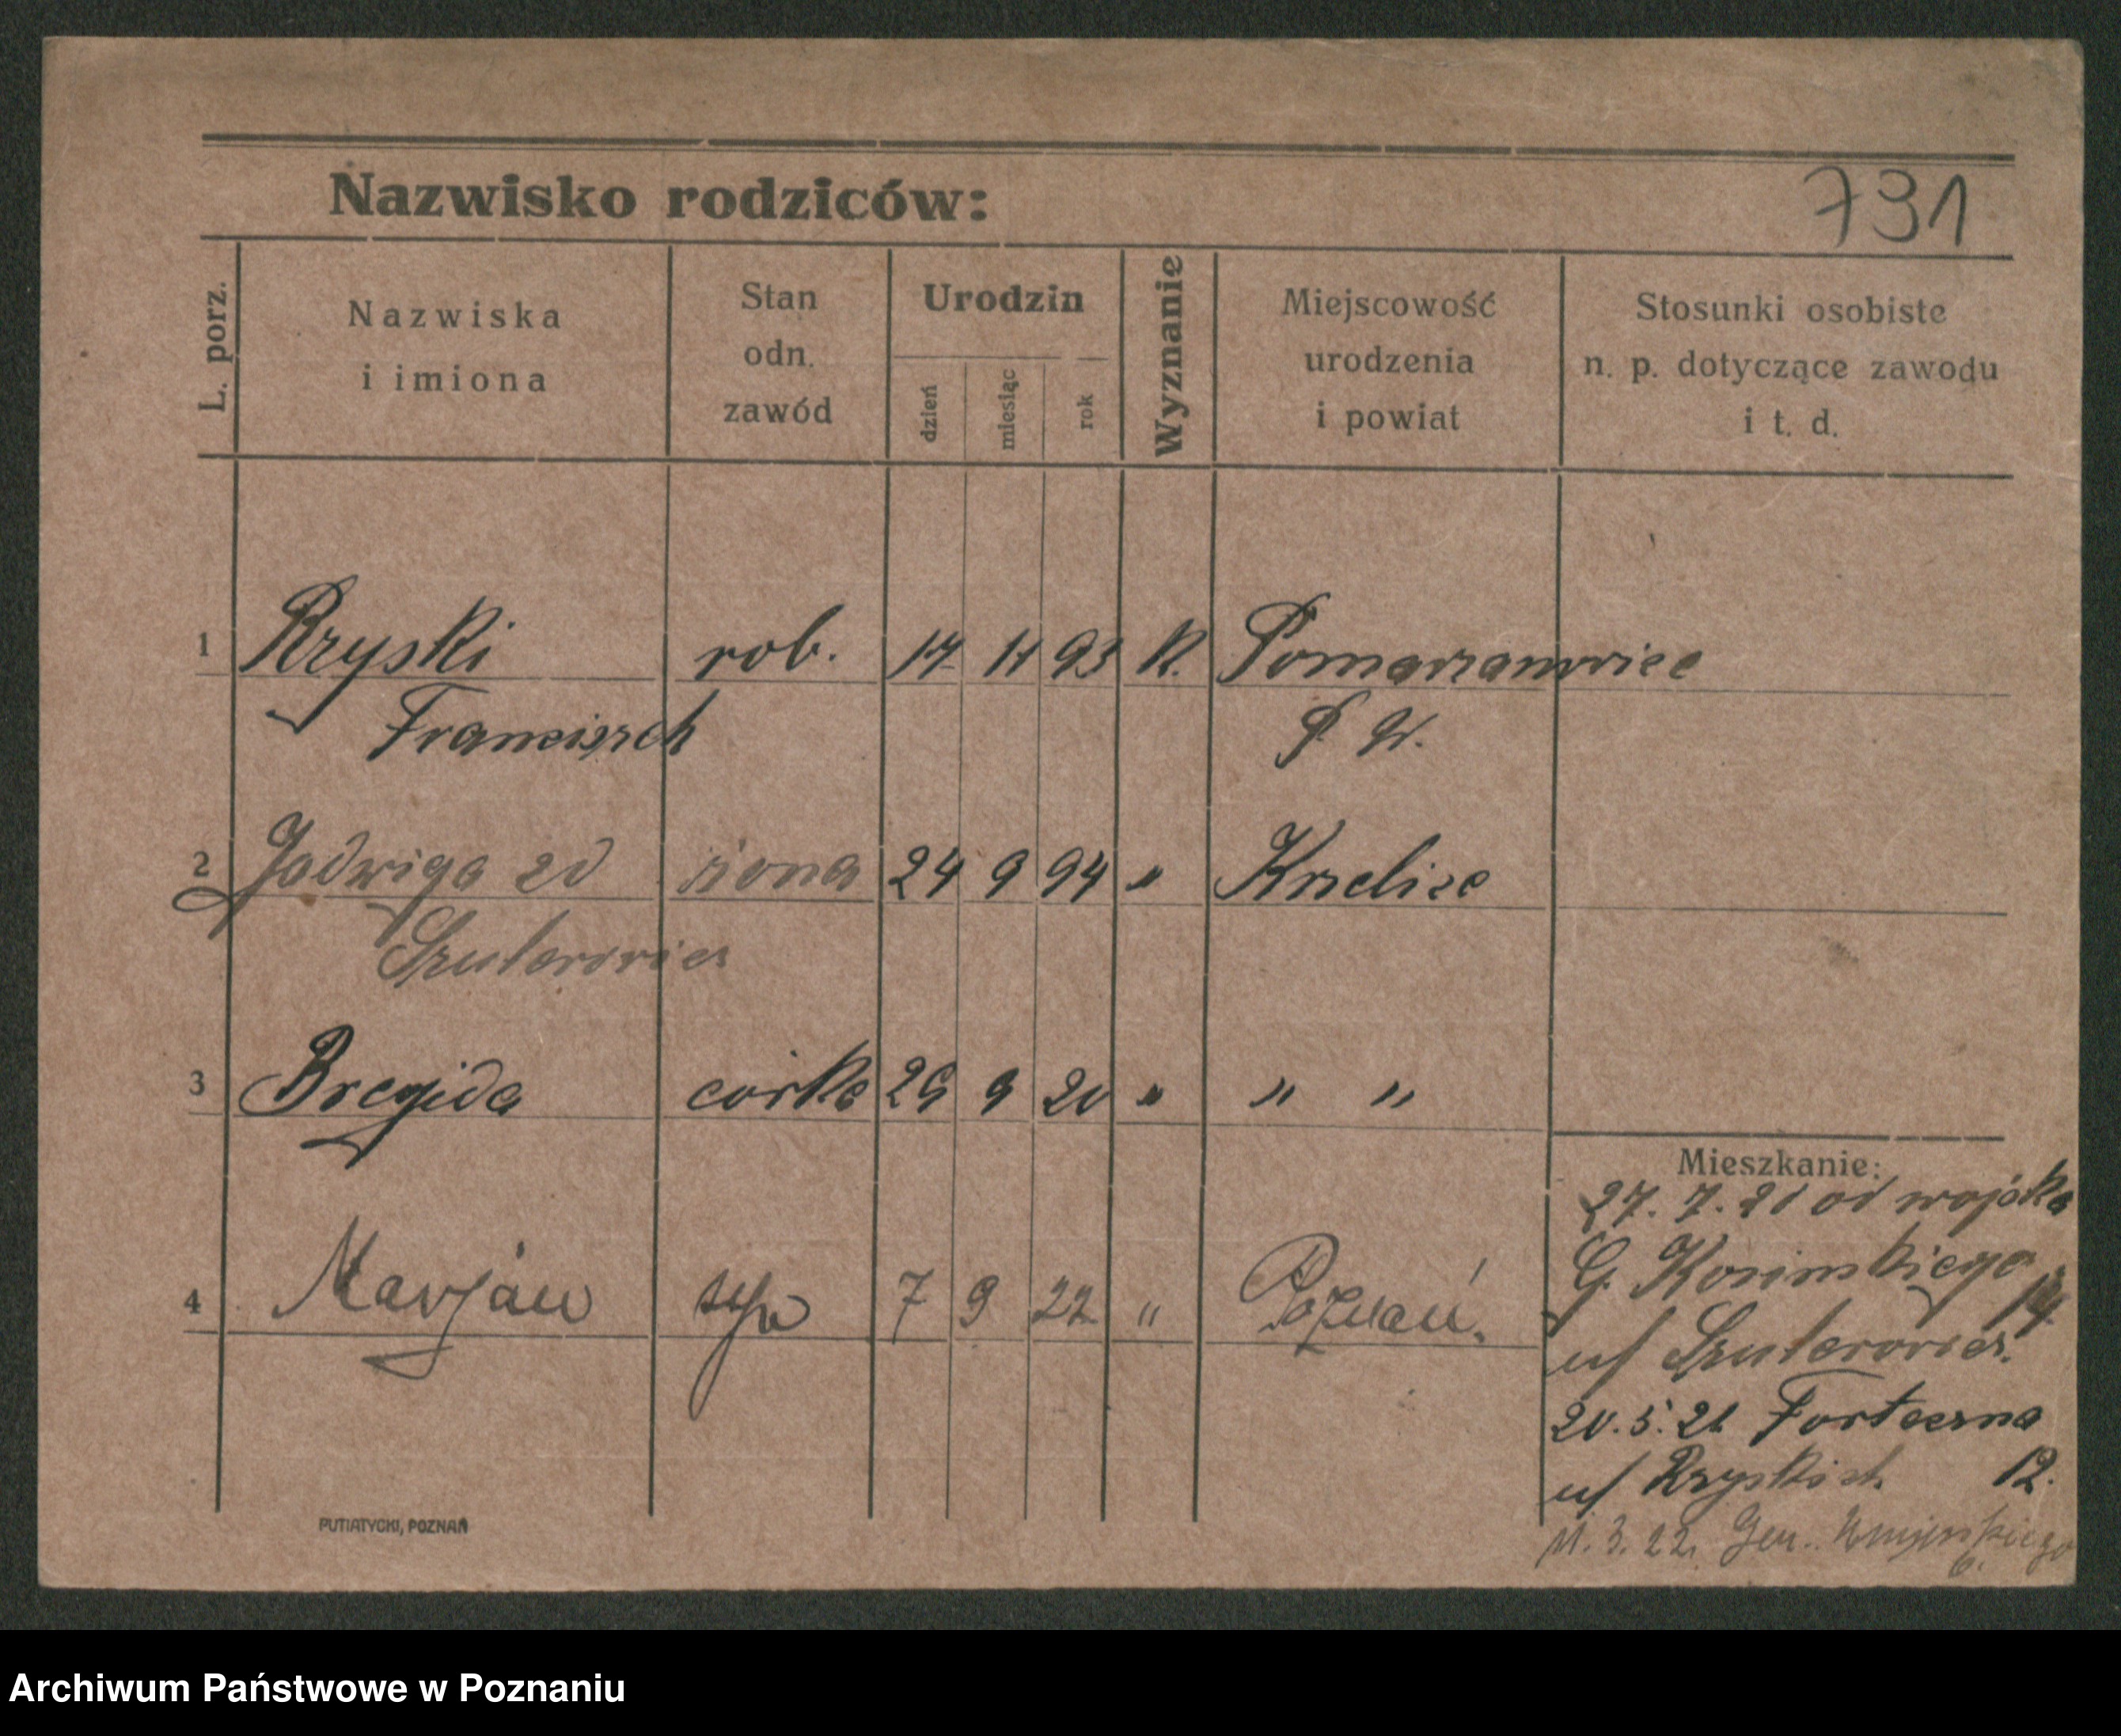 Nazwisko rodziców:
731
L. porz.
Nazwiska
i imiona
Stan
odn.
zawód
Urodzin
dzień
miesiąc
rok
Wyznanie
Miejscowość
urodzenia
i powiat
Stosunki osobiste
n. p. dotyczące zawodu
i t. d.
1 Rzyski rob. 17 11 93 K.
Franciszek P. W.
2 Jadwiga zd żona 24 9 94 "
Szulerowicz
3 córka 29 9 20 " " "
4 Marjan syn 7 9 22 " Poznań.
Mieszkanie:
27. 7. 20 od wojska
G. Kosińskiego 14.
u/ Szulerowicz.
20. 5. 21 Forteczna
u/ Rzyskich 12.
11. 3. 22. Gen. 6.
PUTIATYCKI, POZNAŃ
Archiwum Państwowe w Poznaniu